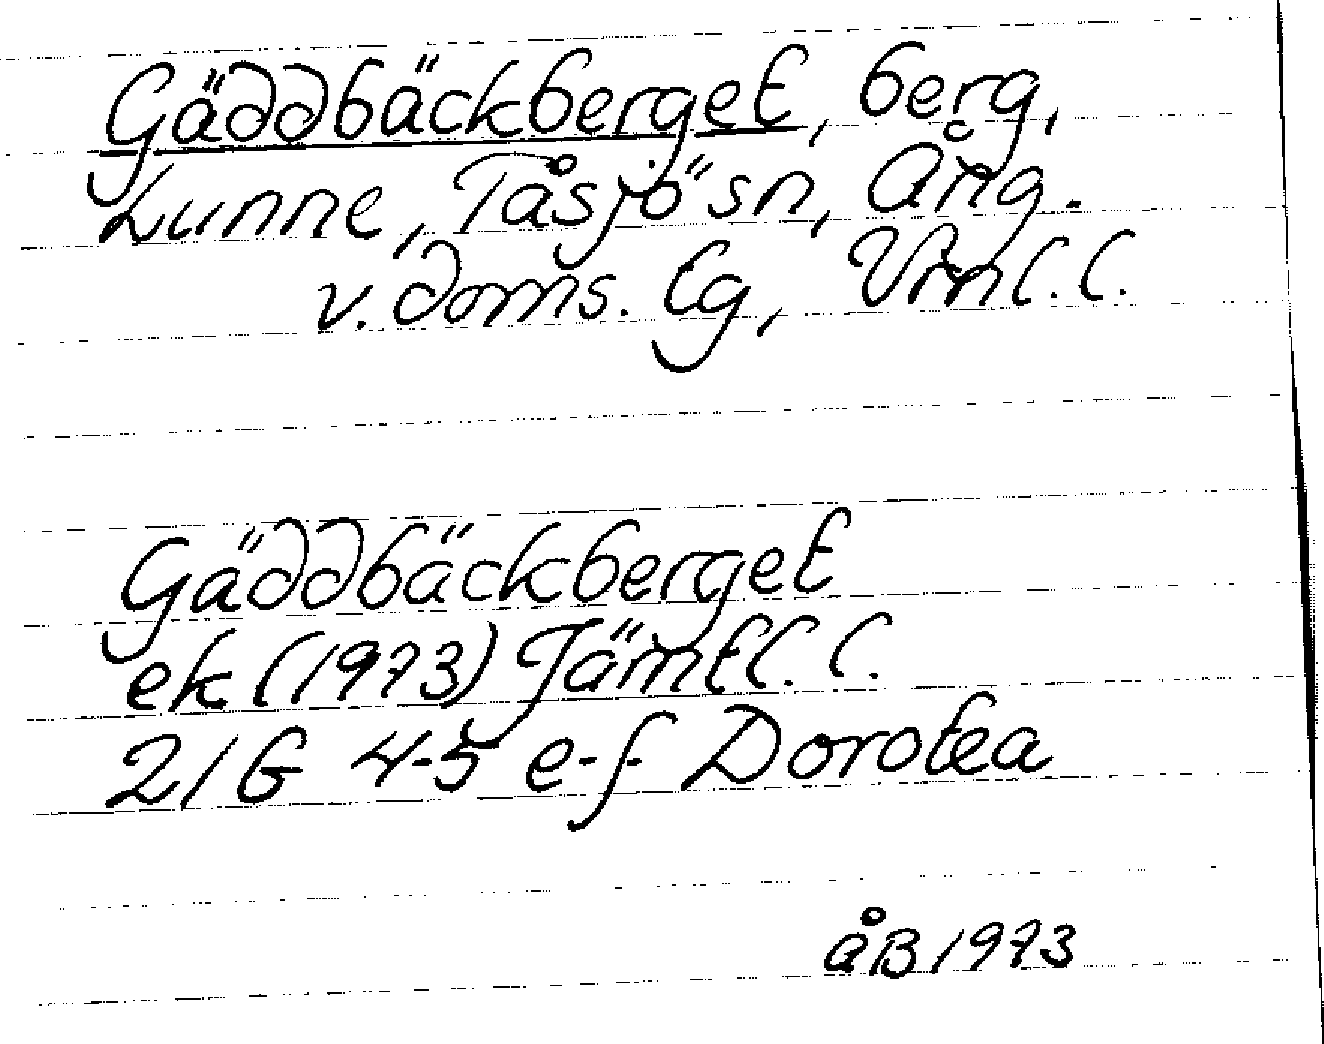 Gäddbäckberget, berg,
Lunne, Tåsjö sn, Ång.
v. doms. lg, Vrnl. l.
Gäddbäckberget
ek (1973) Jämtl. l.
21G 4-5 e-f Dorotea
åB 1973